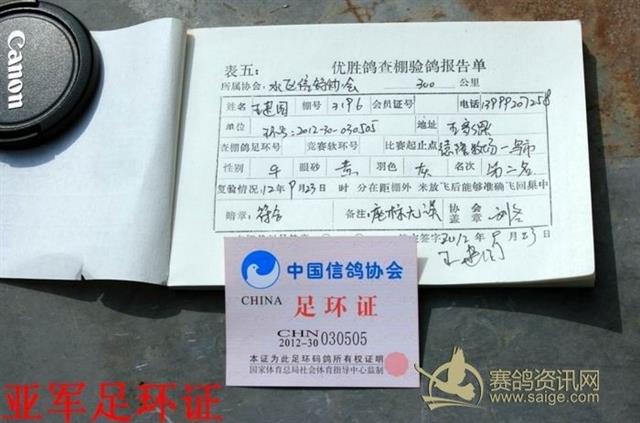 Canon
表五：
优胜鸽查棚验鸽报告单
所属协会：水区信鸽协会 300 公里
姓名 王建国 棚号 3196 会员证号 电话
单位 环号：2012-30-030505 地址
查棚鸽足环号 竞赛软环号 比赛起止点
性别 眼砂 黄 羽色 灰 名次 第二名
复验情况：12年9月23日 时 分在距棚外 米放飞后能够准确飞回巢中
暗章： 符合 备注： 协会盖章
签字 2012年9月23日
中国信鸽协会
CHINA 足环证
CHN
2012-30 030505
本证为此足环码鸽所有权证明
国家体育总局社会体育指导中心监制
亚军足环证
赛鸽资讯网
www.saige.com